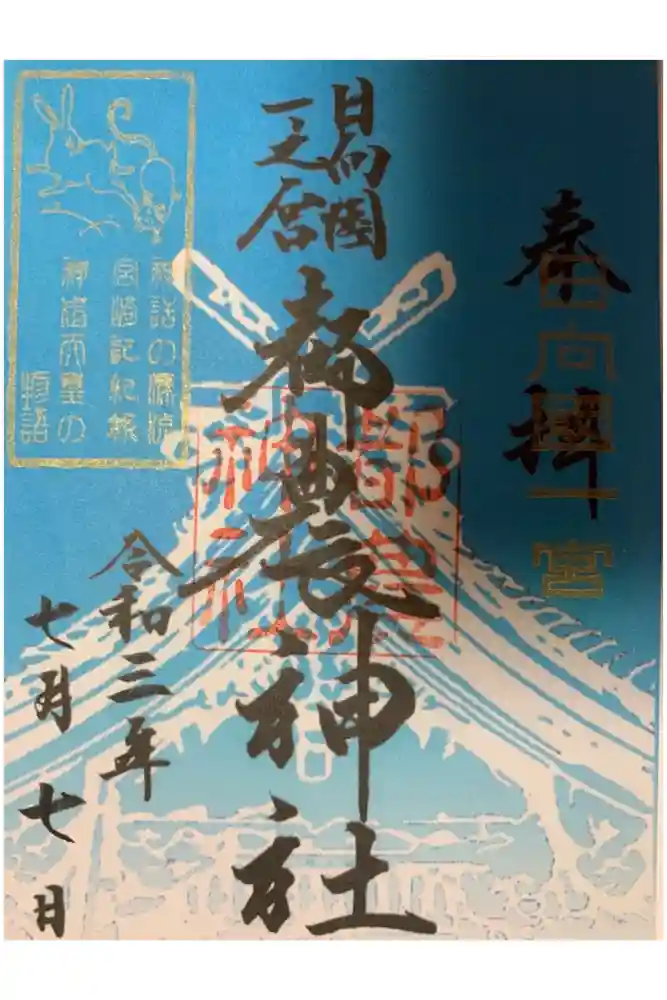 奉拝
日向國一宮
日向國
一之宮
都農神社
都農
神社
令和三年
七月七日
神話の源流
宮崎記紀編
神武天皇の
物語